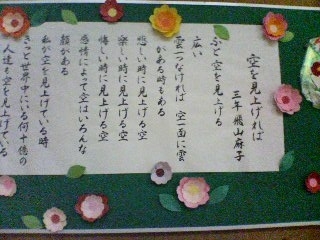 空を見上げれば
三年 飛山麻子
ふと空を見上げる
広い
雲一つなければ 空一面に雲
がある時もある
悲しい時に見上げる空
楽しい時に見上げる空
悔しい時に見上げる空
感情によって空はいろんな
顔がある
私が空を見上げている時
きっと世界中にいる何十億の
人達も空を見上げている